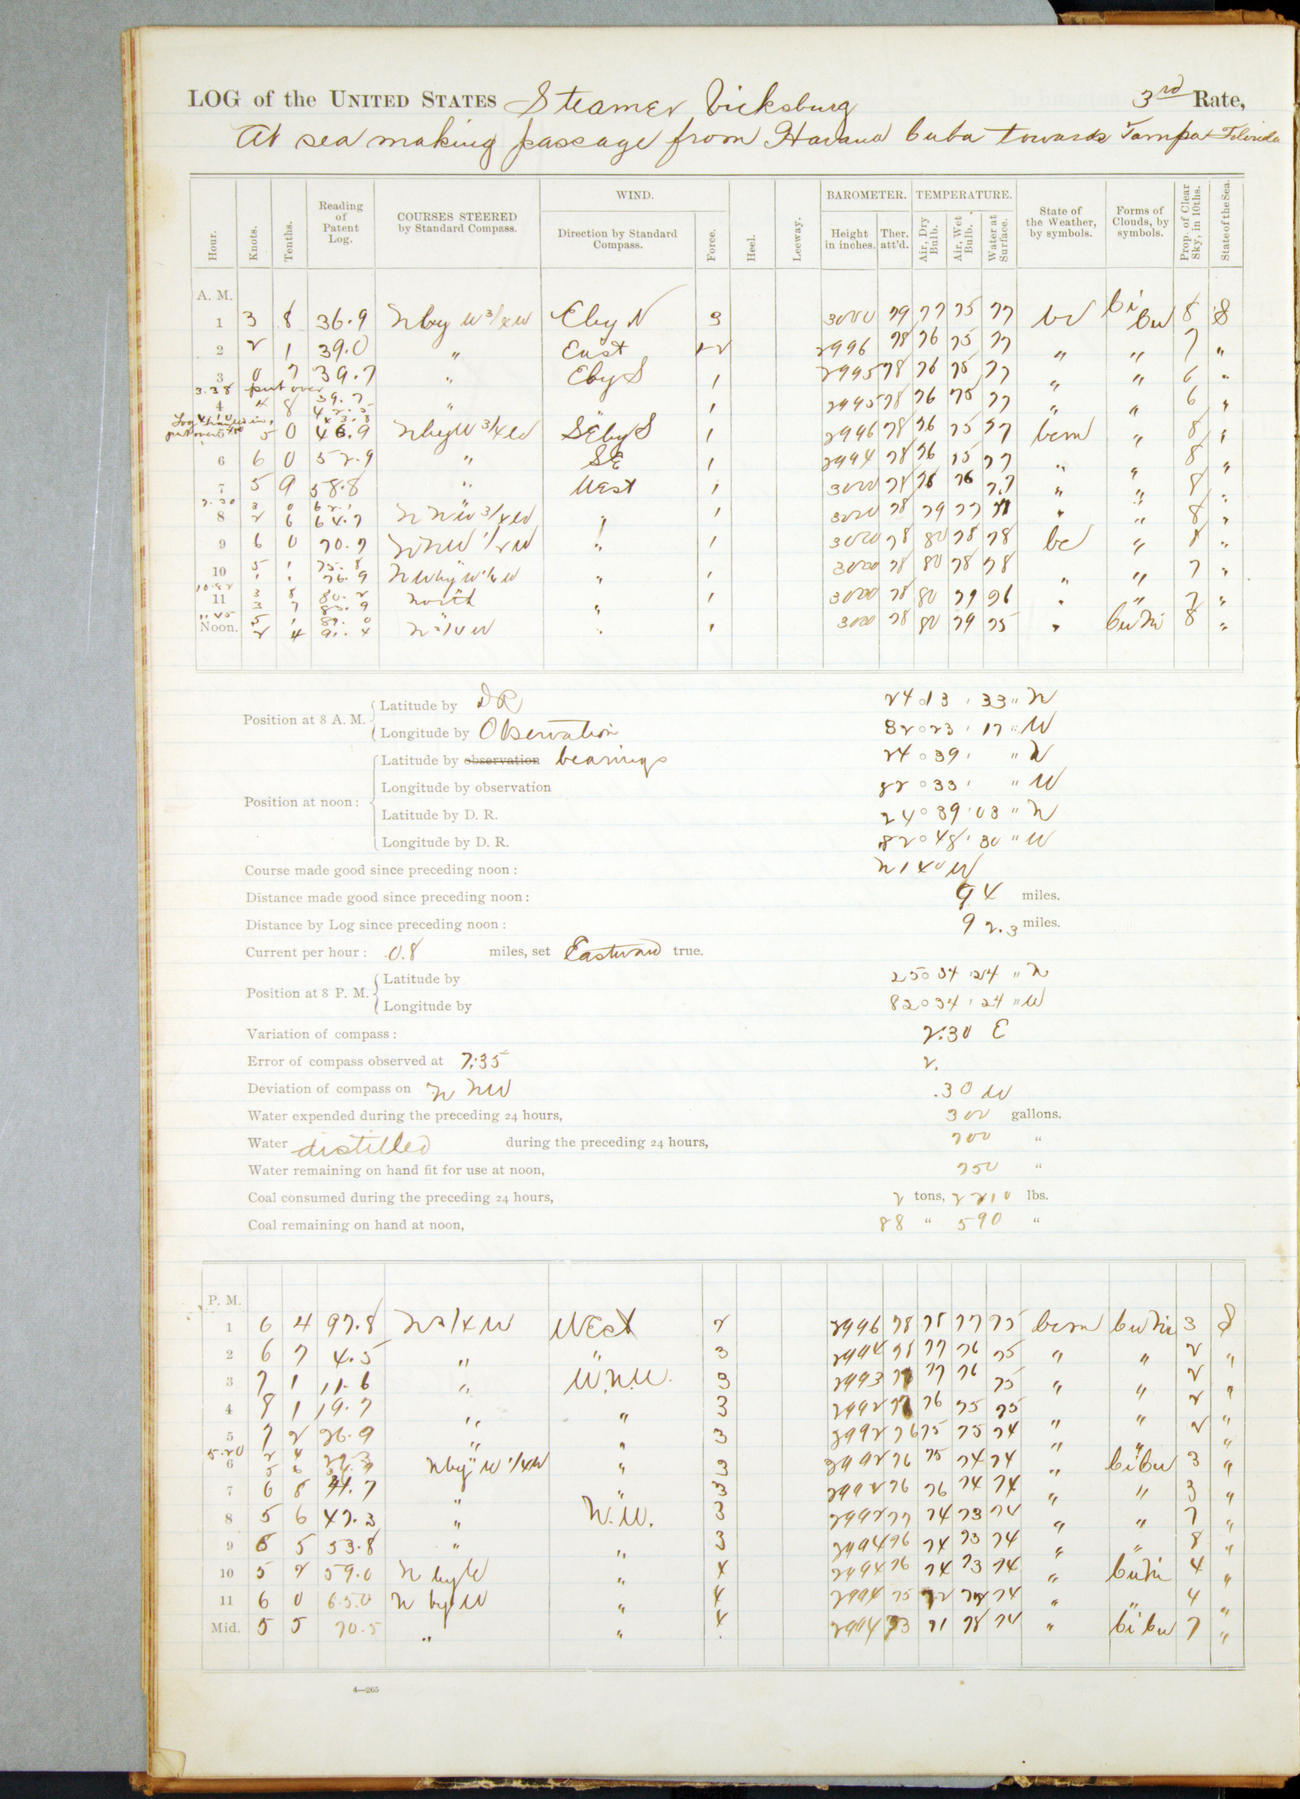 LOG of the UNITED STATES Steamer Vicksburg 3rd Rate,
At sea making passage from Havana Cuba towards Tampa Florida
Hour. Knots. Tenths. Reading of Patent Log. COURSES STEERED by Standard Compass. WIND. Direction by Standard Compass. Force. Heel. Leeway. BAROMETER. Height in inches. Ther. att'd. TEMPERATURE. Air, Dry Bulb. Air, Wet Bulb. Water at Surface. State of the Weather, by symbols. Forms of Clouds, by symbols. Prop. of Clear Sky, in 10ths. State of the Sea.
A. M.
1 3 8 36.9 N by W 3/4 W E by N 3 3000 79 77 75 77 bc Ci Cu 8 S
2 2 1 39.0 " East 1-2 2996 78 76 75 77 " " 7 "
3 0 7 39.7 " E by S 1 2995 78 76 75 77 " " 6 "
3.38 put over 39.7
4 4 8 42.5 " " 1 2995 78 76 75 77 " " 6 "
5 0 48.9 N by W 3/4 W SE by S 1 2996 78 76 75 77 bcm " 8 "
6 6 0 52.9 " SE 1 2994 78 76 75 77 " " 8 "
7 5 9 58.8 " West 1 3000 78 76 76 77 " " 8 "
7.30 3 0 62.1
8 2 6 64.7 N N W 3/4 W " 1 3000 78 79 77 77 " " 8 "
9 6 0 70.7 NNW 1/2 W " 1 3000 78 80 78 78 bc " 8 "
10 5 1 75.8 N W by W 1/2 W " 1 3000 78 80 78 78 " " 7 "
1 1 76.9
11 3 8 80.2 North " 1 3000 78 80 79 76 " " 7 "
3 7 83.9
11.45 5 1 89.0
Noon. 2 4 91.4 N 3/4 W " 1 3000 78 80 79 75 " Cu Ni 8 "
Position at 8 A. M. Latitude by DR 24 ° 13 ' 33 " N
Longitude by Observation 82 ° 23 ' 17 " W
Position at noon: Latitude by observation bearings 24 ° 39 ' " N
Longitude by observation 82 ° 33 ' " W
Latitude by D. R. 24 ° 39 ' 03 " N
Longitude by D. R. 82 ° 48 ' 30 " W
Course made good since preceding noon: N 14° W
Distance made good since preceding noon: 94 miles.
Distance by Log since preceding noon: 92.3 miles.
Current per hour: 0.8 miles, set Eastward true.
Position at 8 P. M. Latitude by 25 ° 34 ' 24 " N
Longitude by 82 ° 34 ' 24 " W
Variation of compass: 2.30 E
Error of compass observed at 7:35 2.
Deviation of compass on N NW .30 W
Water expended during the preceding 24 hours, 300 gallons.
Water distilled during the preceding 24 hours, 700 "
Water remaining on hand fit for use at noon, 750 "
Coal consumed during the preceding 24 hours, 2 tons, 2210 lbs.
Coal remaining on hand at noon, 88 " 590 "
P. M.
1 6 4 97.8 N 3/4 W West 2 2996 78 78 77 75 bcm Cu Ni 3 S
2 6 7 4.5 " " 3 2994 78 77 76 75 " " 2 "
3 7 1 11.6 " W.N.W. 3 2993 77 77 76 75 " " 2 "
4 8 1 19.7 " " 3 2992 77 76 75 75 " " 2 "
5 7 2 26.9 " " 3 2992 76 75 75 74 " " 2 "
5.20 2 4 29.3
6 5 6 N by W 1/4 W " 3 2992 76 75 74 74 " Ci Cu 3 "
7 6 8 41.7 " " 3 2992 76 76 74 74 " " 3 "
8 5 6 47.3 " N.W. 3 2992 77 74 73 74 " " 7 "
9 6 5 53.8 " " 3 2994 76 74 73 74 " " 8 "
10 5 2 59.0 N by W " 4 2994 76 74 73 74 " Cu Ni 4 "
11 6 0 65.0 N by W " 4 2994 75 72 72 74 " " 4 "
Mid. 5 5 70.5 " " 4 2994 73 71 78 74 " Ci Cu 7 "
4—265